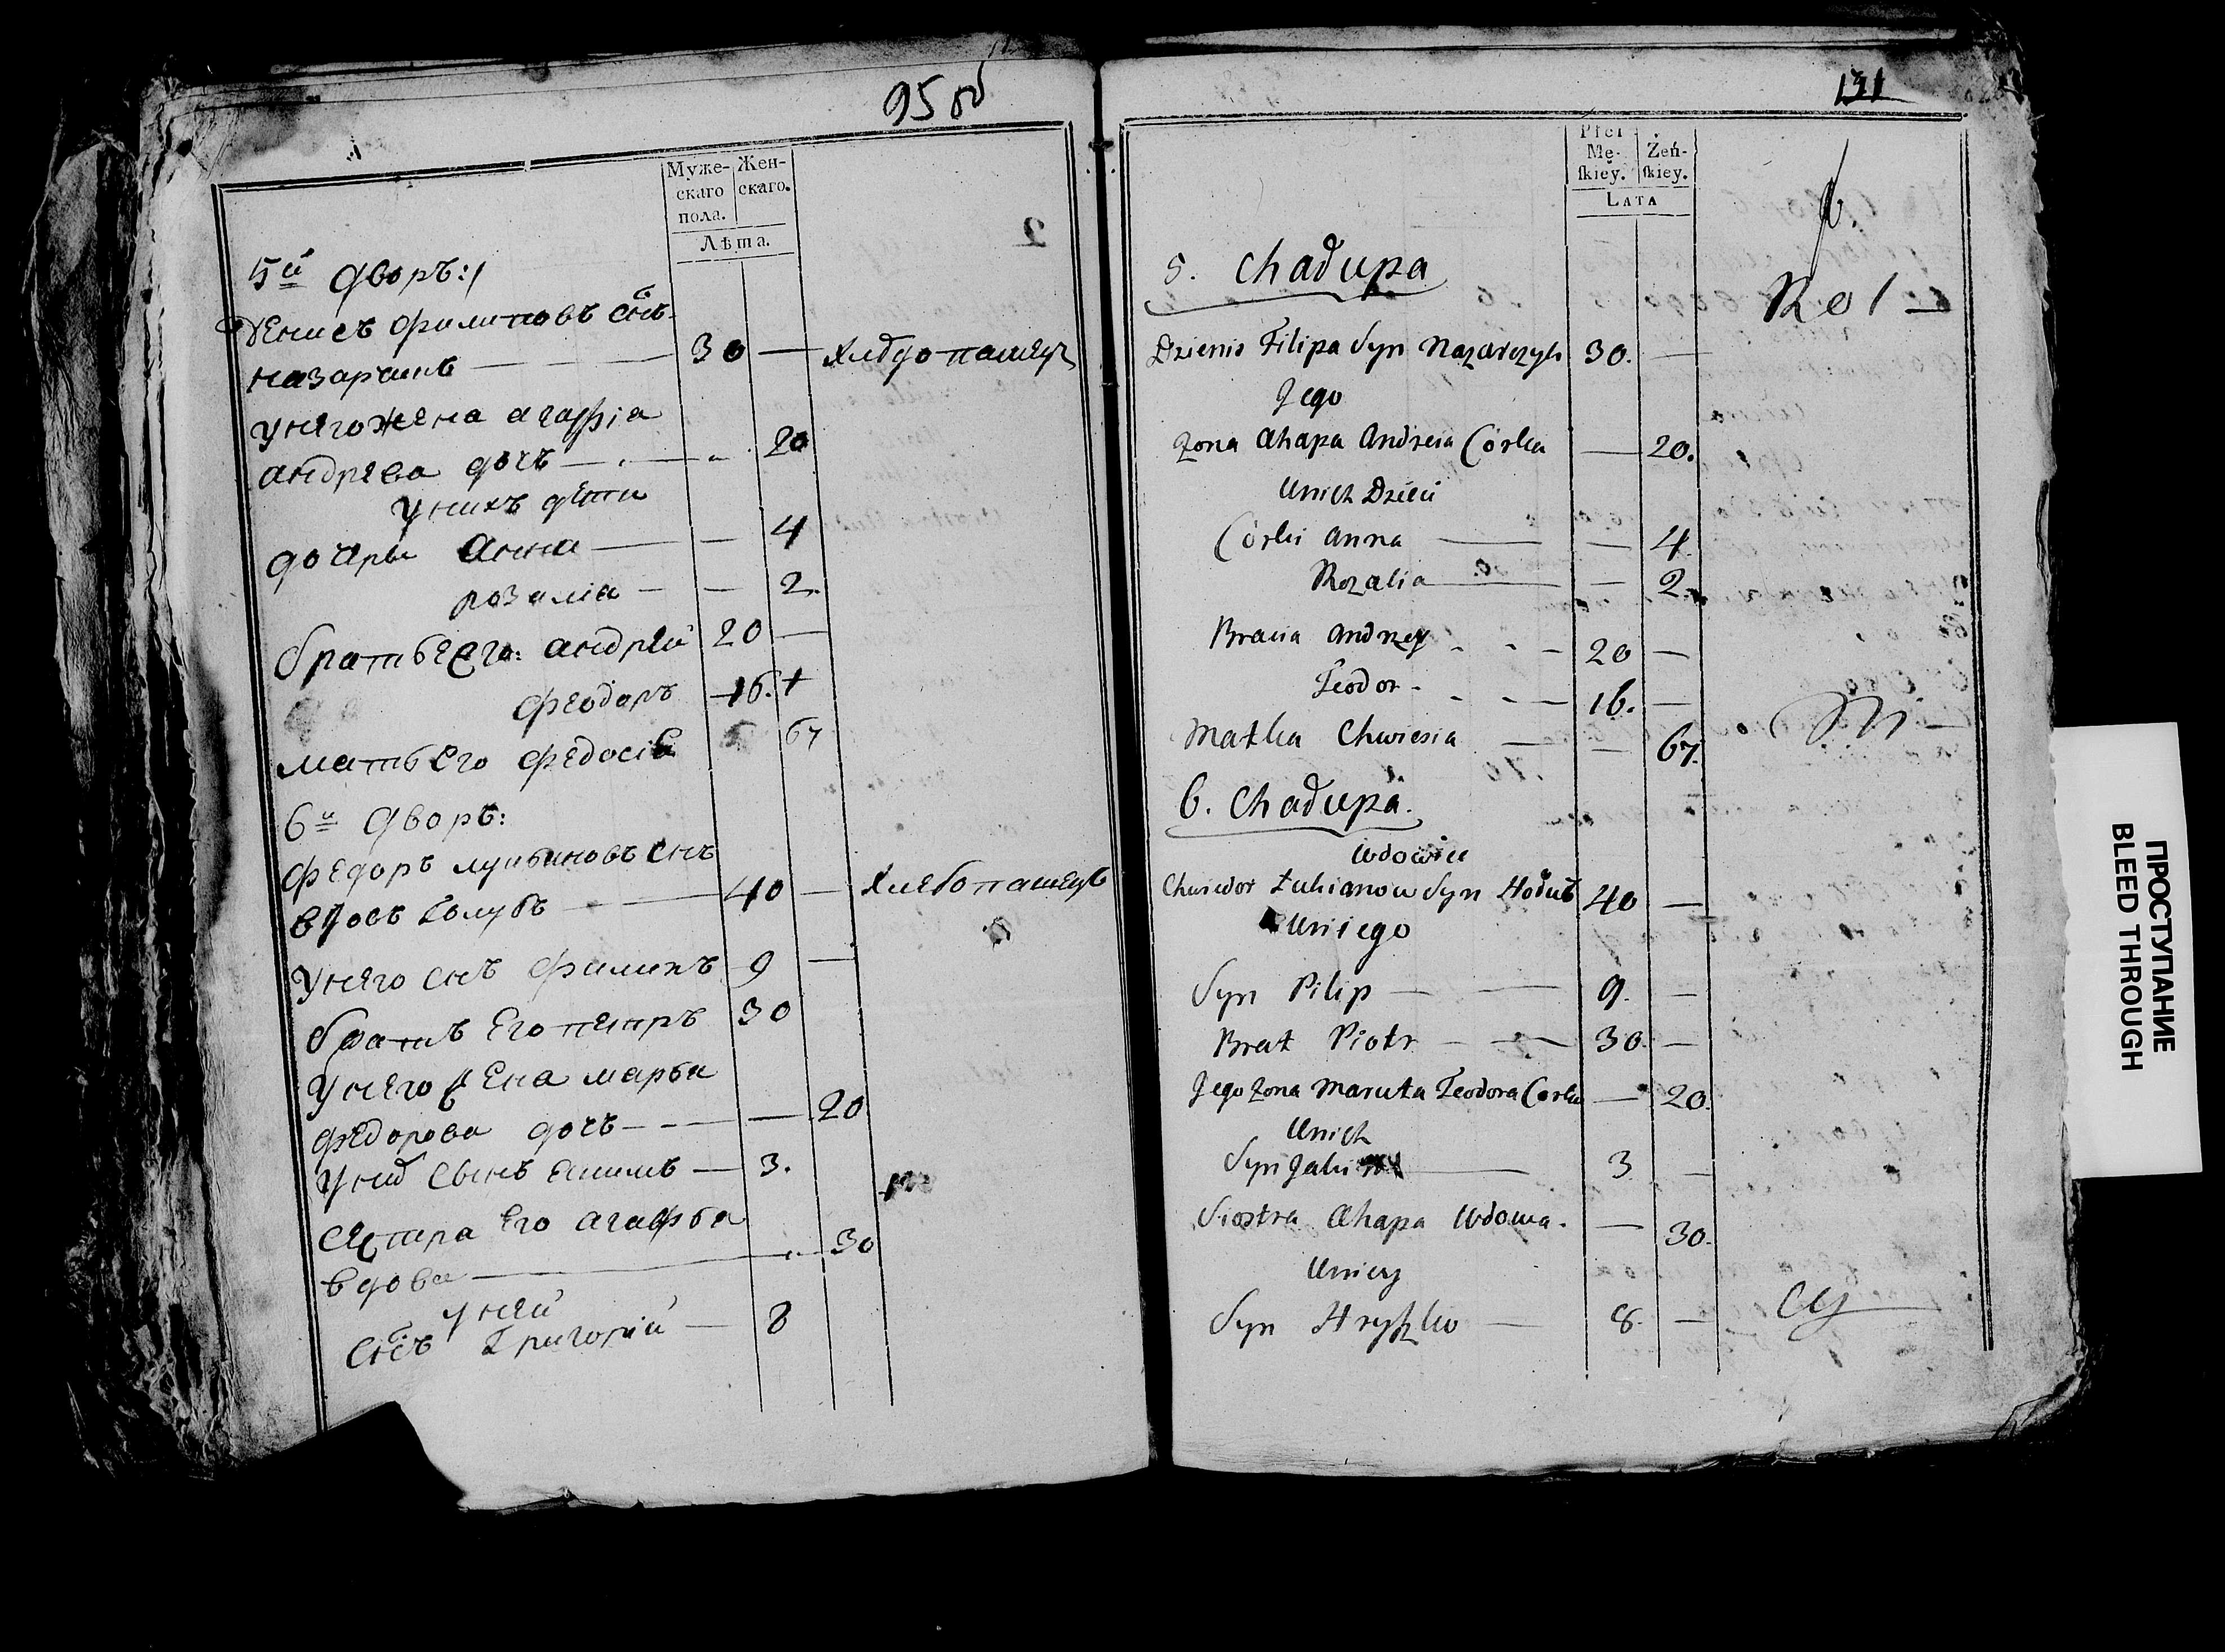 95 об
Муже-
скаго
пола.
Жен-
скаго.
Лѣта.
5й дворъ:
Денисъ Филиповъ снъ
назарчикъ 30 — хлѣбопашец
у него жена агафiя
андрѣева дочъ — 20
у нихъ дети
дочери Анна — — 4
розалiа — — 2.
братья его: андрей 20 —
феодоръ 16. +
мать его федосiа 67
6й дворъ:
федоръ лукьяновъ снъ
вдовъ голубъ 40 — хлебопашецъ
у него снъ филипъ 9 —
братъ его петръ 30
у него жена марья
федорова дочъ — — 20
у них сынъ еким — 3.
сестра его агафья
вдова — 30
у ней
снъ Григорiй — 8
131
Płci
Mę-
skiey.
Żeń-
skiey.
LATA
5. Chałupa
Rol —
Dzienis Filipa Syn Nazarczyk 30. —
Jego
Zona Ahapa Andreia Corka — 20.
Unich Dzieci
Corki Anna — — 4.
Rozalia — — 2.
Bracia Andrzey - - - 20 —
Teodor - - - - 16. —
Matka Chwiesia — — 67.
6. Chałupa.
Wdowiec
Chwiedor Łukianow Syn Hołub 40 —
Uniego
Syn Pilip — — 9. —
Brat Piotr — — 30. —
Jego Zona Maruta Teodora Corka — 20.
Unich
Syn — 3 —
Siostra Ahapa Wdowa. — 30.
Uniey
Syn Hryszko — 8. —
ПРОСТУПАНИЕ
BLEED THROUGH